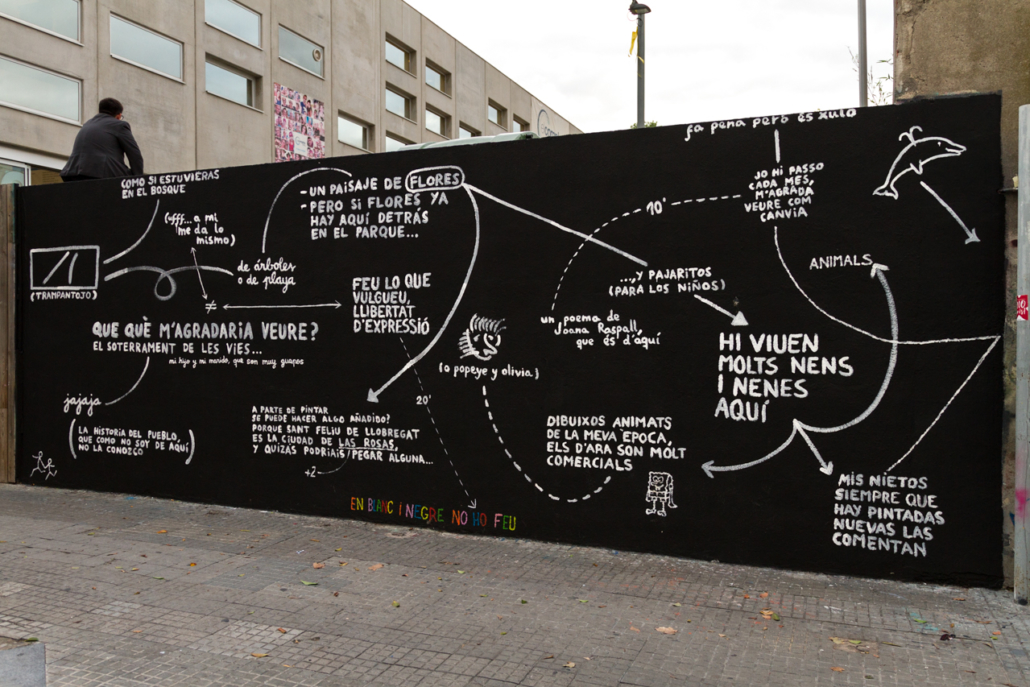 COMO SI ESTUVIERAS
EN EL BOSQUE
(TRAMPANTOJO)
(Pfff...a mi
me da lo
mismo)
de árboles
o de playa
- UN PAISAJE DE FLORES
- PERO SI FLORES YA
HAY AQUÍ DETRÁS
EN EL PARQUE...
≠
FEU LO QUE
VULGUEU,
LLIBERTAT
D'EXPRESSIÓ
QUE QUÈ M'AGRADARIA VEURE?
EL SOTERRAMENT DE LES VIES...
mi hijo y mi marido, que son muy guapos
jajaja
(LA HISTORIA DEL PUEBLO,
QUE COMO NO SOY DE AQUÍ
NO LA CONOZCO)
A PARTE DE PINTAR
SE PUEDE HACER ALGO AÑADIDO?
PORQUE SANT FELIU DE LLOBREGAT
ES LA CIUDAD DE LAS ROSAS,
Y QUIZÁS PODRIAIS PEGAR ALGUNA...
+2
20'
EN BLANC I NEGRE NO HO FEU
(o popeye y olivia)
DIBUIXOS ANIMATS
DE LA MEVA ÈPOCA,
ELS D'ARA SON MOLT
COMERCIALS
un poema de
Joana Raspall,
que és d'aquí
10'
...Y PAJARITOS
(PARA LOS NIÑOS)
fa pena però és xulo
JO HI PASSO
CADA MES,
M'AGRADA
VEURE COM
CANVIA
ANIMALS
HI VIUEN
MOLTS NENS
I NENES
AQUÍ
MIS NIETOS
SIEMPRE QUE
HAY PINTADAS
NUEVAS LAS
COMENTAN